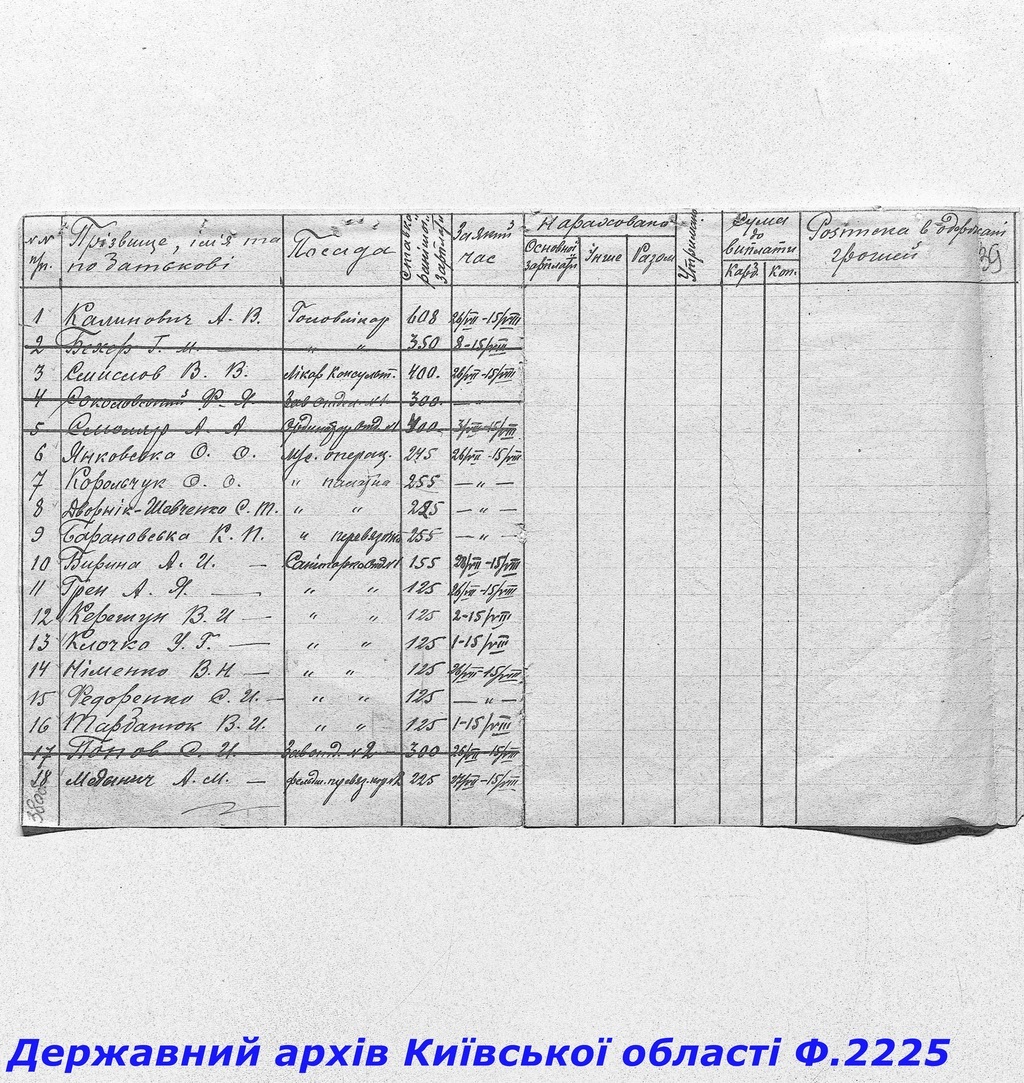 №№ п/п. Прізвище, ім'я та по батькові Посада Ставка зарплати За який час Нараховано Основної зарплати Інше Разом Утримано Сума до виплати Карб. Коп. Розписка в одержані грошей 39
1 Калинович А. В. Головлікар 608 26/VII-15/VIII
2 Бекер Г. М. — " " 350 8-15/VIII
3 Смислов В. В. Лікар Консульт. 400. 26/VII-15/VIII
4 Соколовський Ф. Я. Зав отділ. №1 300. — " —
5 Смоляр А. А Ординатор отд. №1 400 31/VII-15/VIII
6 Янковська О. О. М/с. операц. 245 26/VII-15/VIII
7 Корольчук О. О. " палатна 255 — " —
8 Дворнік-Шевченко Є. Т. " " 225 — " —
9 Барановська К. П. " перевязочн 255 — " —
10 Бирина А. И. — Санітарка отд. №1 155 28/VII-15/VIII
11 Грен А. Я. — " " 125 26/VII-15/VIII
12 В. И — " " 125 2-15/VIII
13 Клочко У. Г. — " " 125 1-15/VIII
14 Німенко В. Н — " " 125 26/VII-15/VIII
15 Федоренко О. И. — " " 125 — " —
16 Тарбанюк В. И. " " 125 1-15/VIII
17 Попов С. И. Зав отд. №2 300 26/VII-15/VIII
18 Меданич А. М. — фельдш. 225 27/VII-15/VIII
Державний архів Київської області Ф.2225